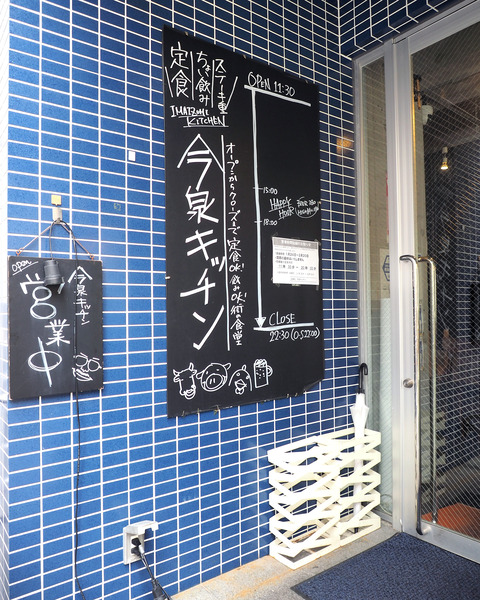 定食
ちょい飲み
ステーキ重
IMAIZUMI
KITCHEN
今泉キッチン
オープンからクローズまで定食OK!飲みOK!街の食堂
OPEN 11:30
15:00
HAPPY
HOUR
18:00
CLOSE
22:30 (O.S 22:00)
open
今泉キッチン
営業中